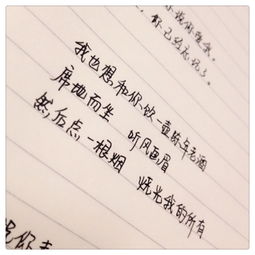 我也想和你饮一壶陈年老酒
席地而坐 听风画眉
然后点一根烟 烧光我的所有